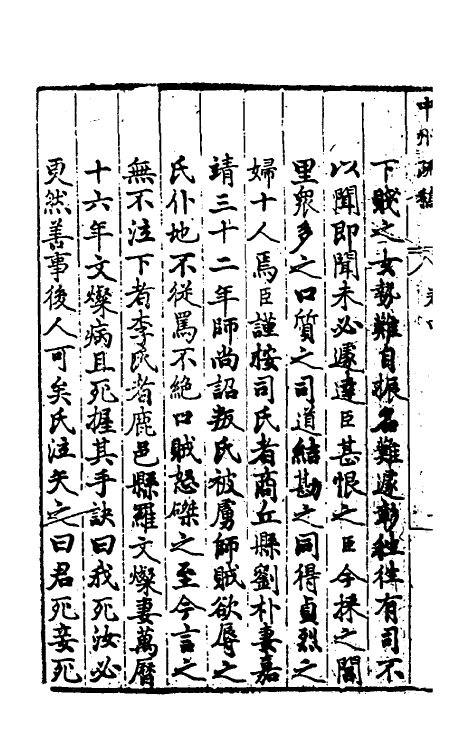 下賤之女勢難自振名難遽彰徃徃有司不
以聞即聞未必遽達臣甚恨之臣今採之閭
里衆多之口質之司道結勘之同得貞烈之
婦十人焉臣謹按司氏者商丘縣劉朴妻嘉
靖三十二年師尚詔叛氏被虜師賊欲辱之
氏仆地不從罵不絕口賊怒磔之至今言之
無不泣下者李氏者鹿邑縣羅文燦妻萬曆
十六年文燦病且死握其手訣曰我死汝必
更然善事後人可矣氏泣矢之曰君死妾死